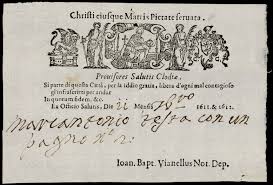 Christi eiusque Matris Pietate seruata.
Prouisores Salutis Clodiæ.
Si parte di questa Città, per la Iddio gratia, libera d'ogni mal contagioso
gl'infrascritti per andar
In quorum fidem. &c.
Ex Officio Salutis, Die ii Mensis 1611. & 1612.
Marcantonio Testa con un
pagno n.º 2:
Ioan. Bapt. Vianellus Not. Dep.